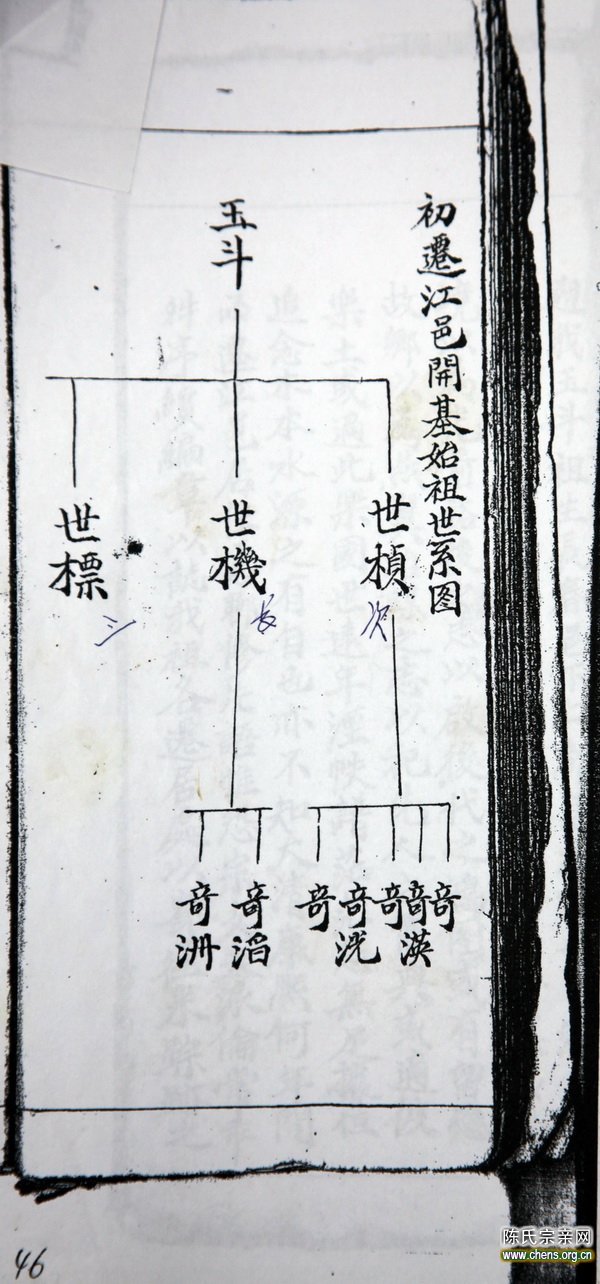 初遷江邑開基始祖世系图
玉斗
世楨
次
世機
長
世標
三
竒
竒渶
竒
竒洗
竒
竒滔
竒洲
46
陈氏宗亲网
www.chens.org.cn